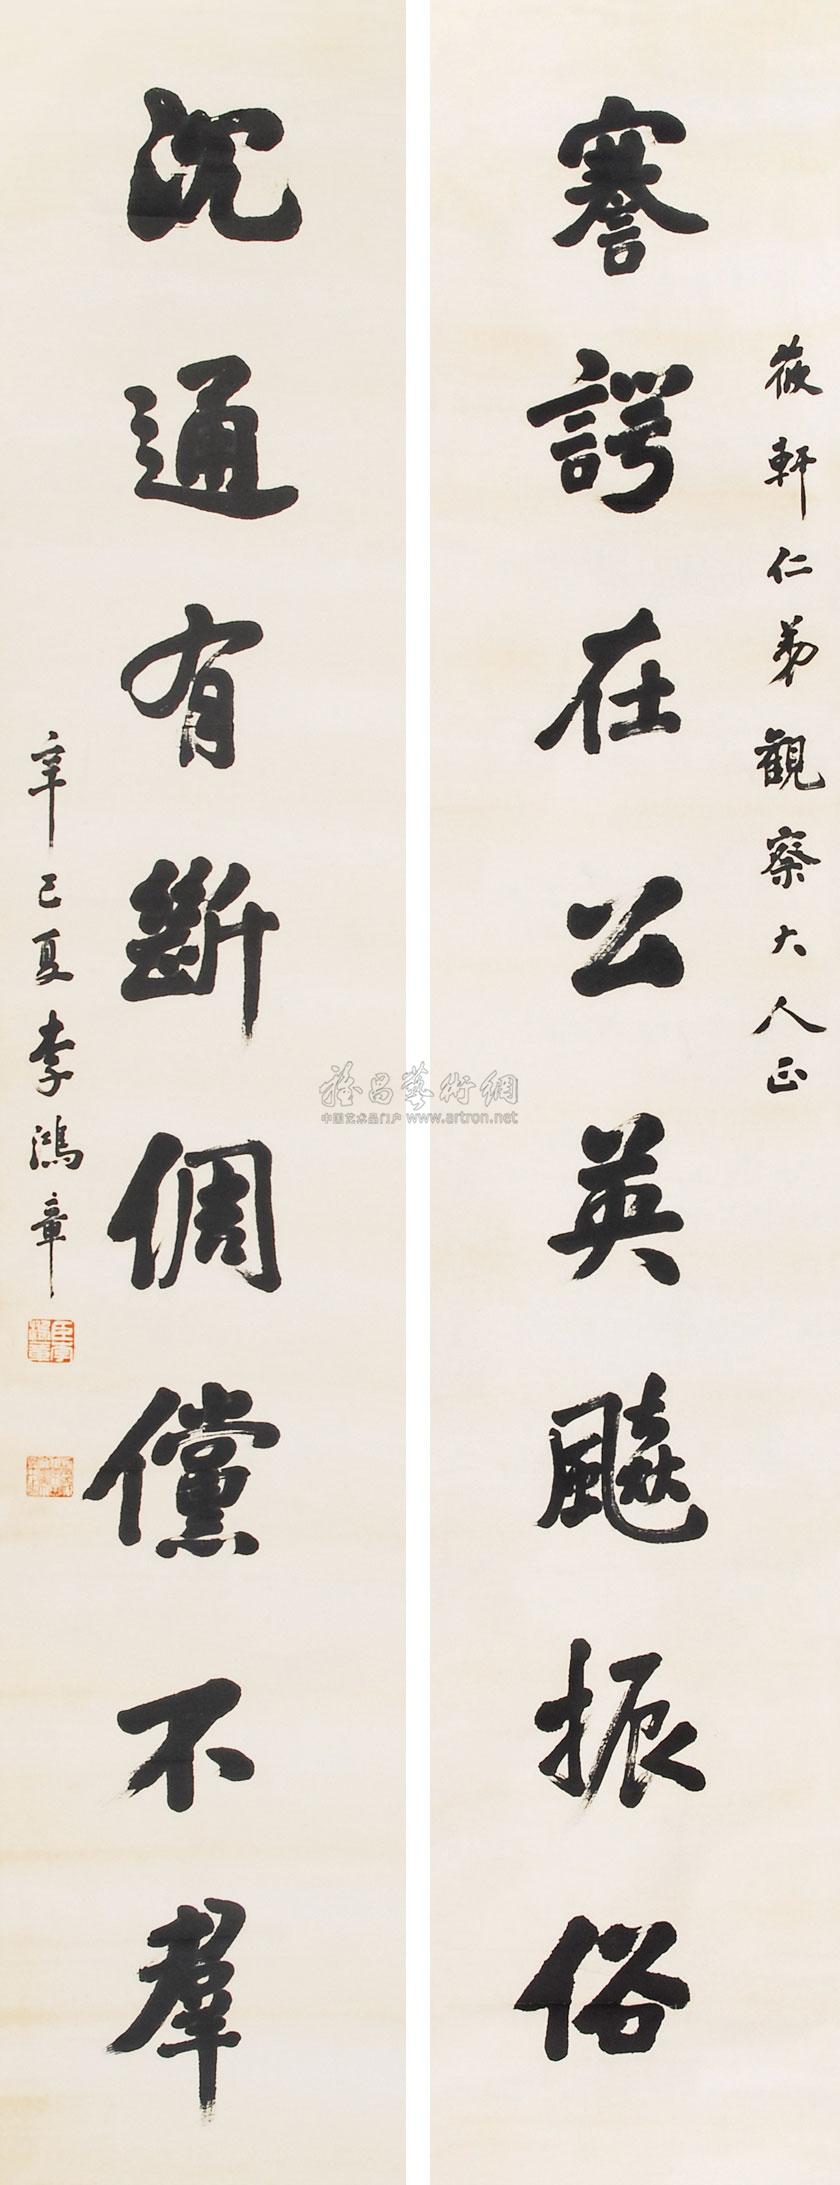 筱軒仁弟觀察大人正
謇諤在公英飈振俗
沉通有斷倜儻不羣
辛巳夏李鴻章
雅昌藝術網
中国艺术品门户 www.artron.net